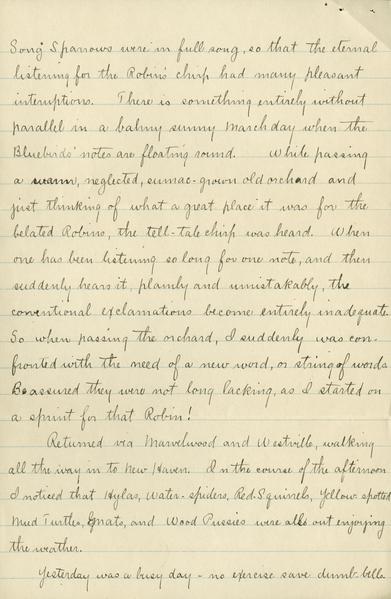 Song Sparrows were in full song, so that the eternal
listening for the Robin's chirp had many pleasant
interuptions. There is something entirely without
parallel in a balmy sunny March day when the
Bluebirds' notes are floating round. While passing
a warm, neglected, sumac-grown old orchard and
just thinking of what a great place it was for the
belated Robins, the tell-tale chirp was heard. When
one has been listening so long for one note, and then
suddenly hears it, plainly and unmistakably, the
conventional exclamations become entirely inadequate.
So when passing the orchard, I suddenly was con-
fronted with the need of a new word, or string of words
Be assured they were not long lacking, as I started on
a sprint for that Robin!
Returned via Marvelwood and Westville, walking
all the way in to New Haven. In the course of the afternoon
I noticed that Hylas, Water-spiders, Red Squirrels, Yellow-spotted
Mud Turtles, Gnats, and Wood Pussies were also out enjoying
the weather.
Yesterday was a busy day - no exercise save dumb-bells